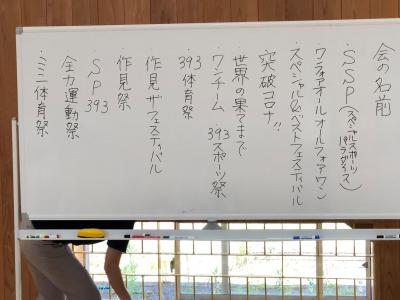 会の名前
・SSP(スペシャルスポーツパラダイス)
・ワンフォアオールオールフォアワン
・スペシャル&ベストフェスティバル
・突破コロナ!!
・世界の果てまで
・ワンチーム・393スポーツ祭
・393体育祭
・作見ザフェスティバル
・作見祭
・SP393
・全力運動祭
・ミニ体育祭